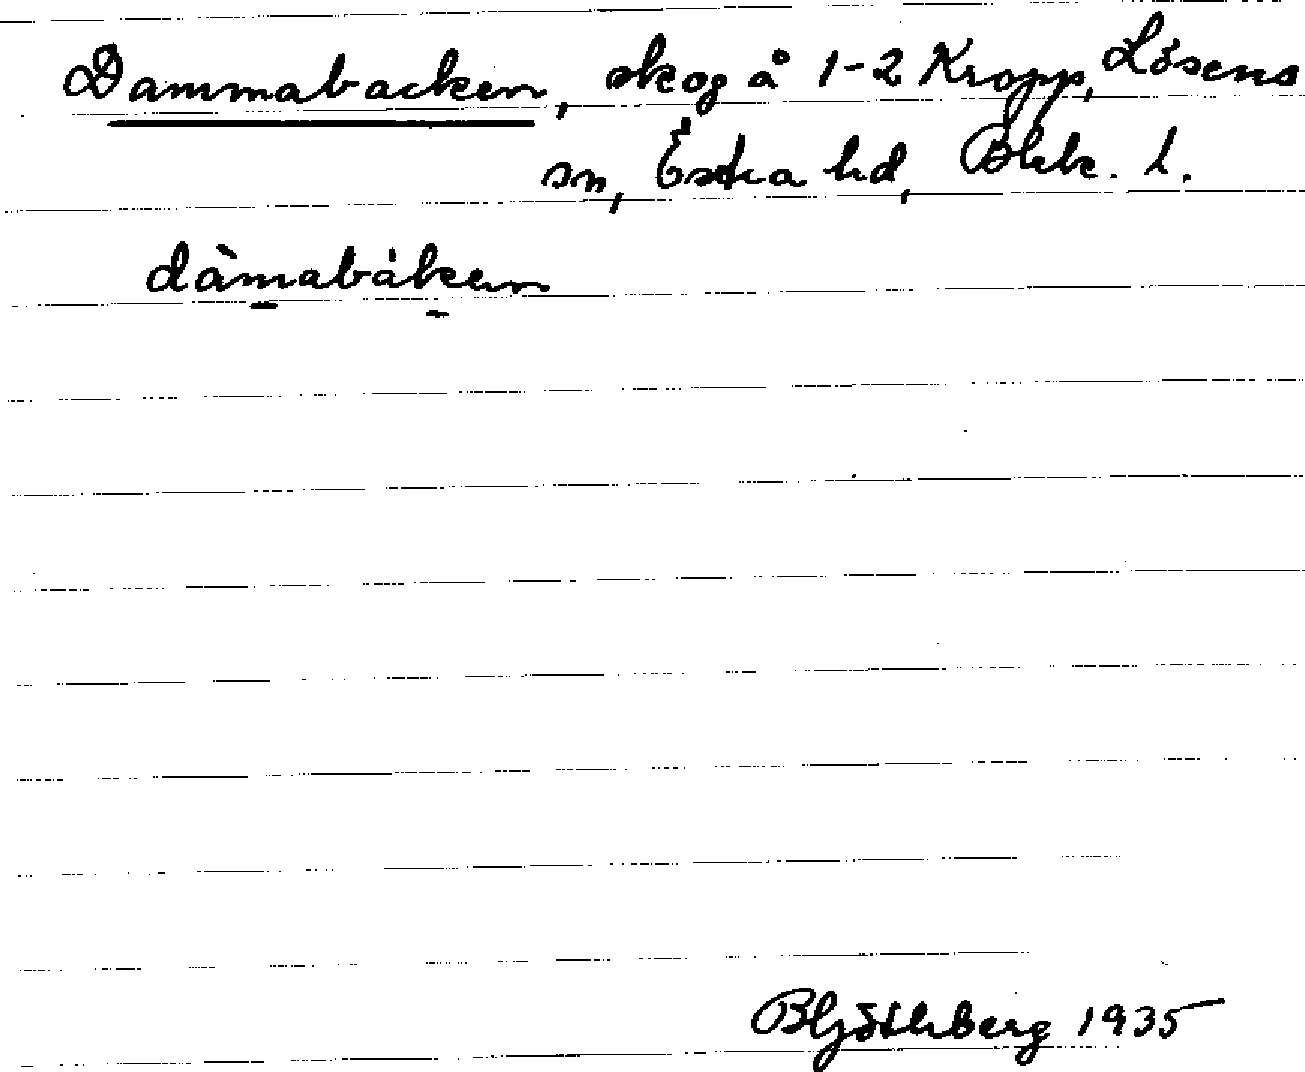 Dammabacken, skog å 1-2 Kropp, Lösens
sn, Östra hd, Blek. l.
dàmabáken
1935